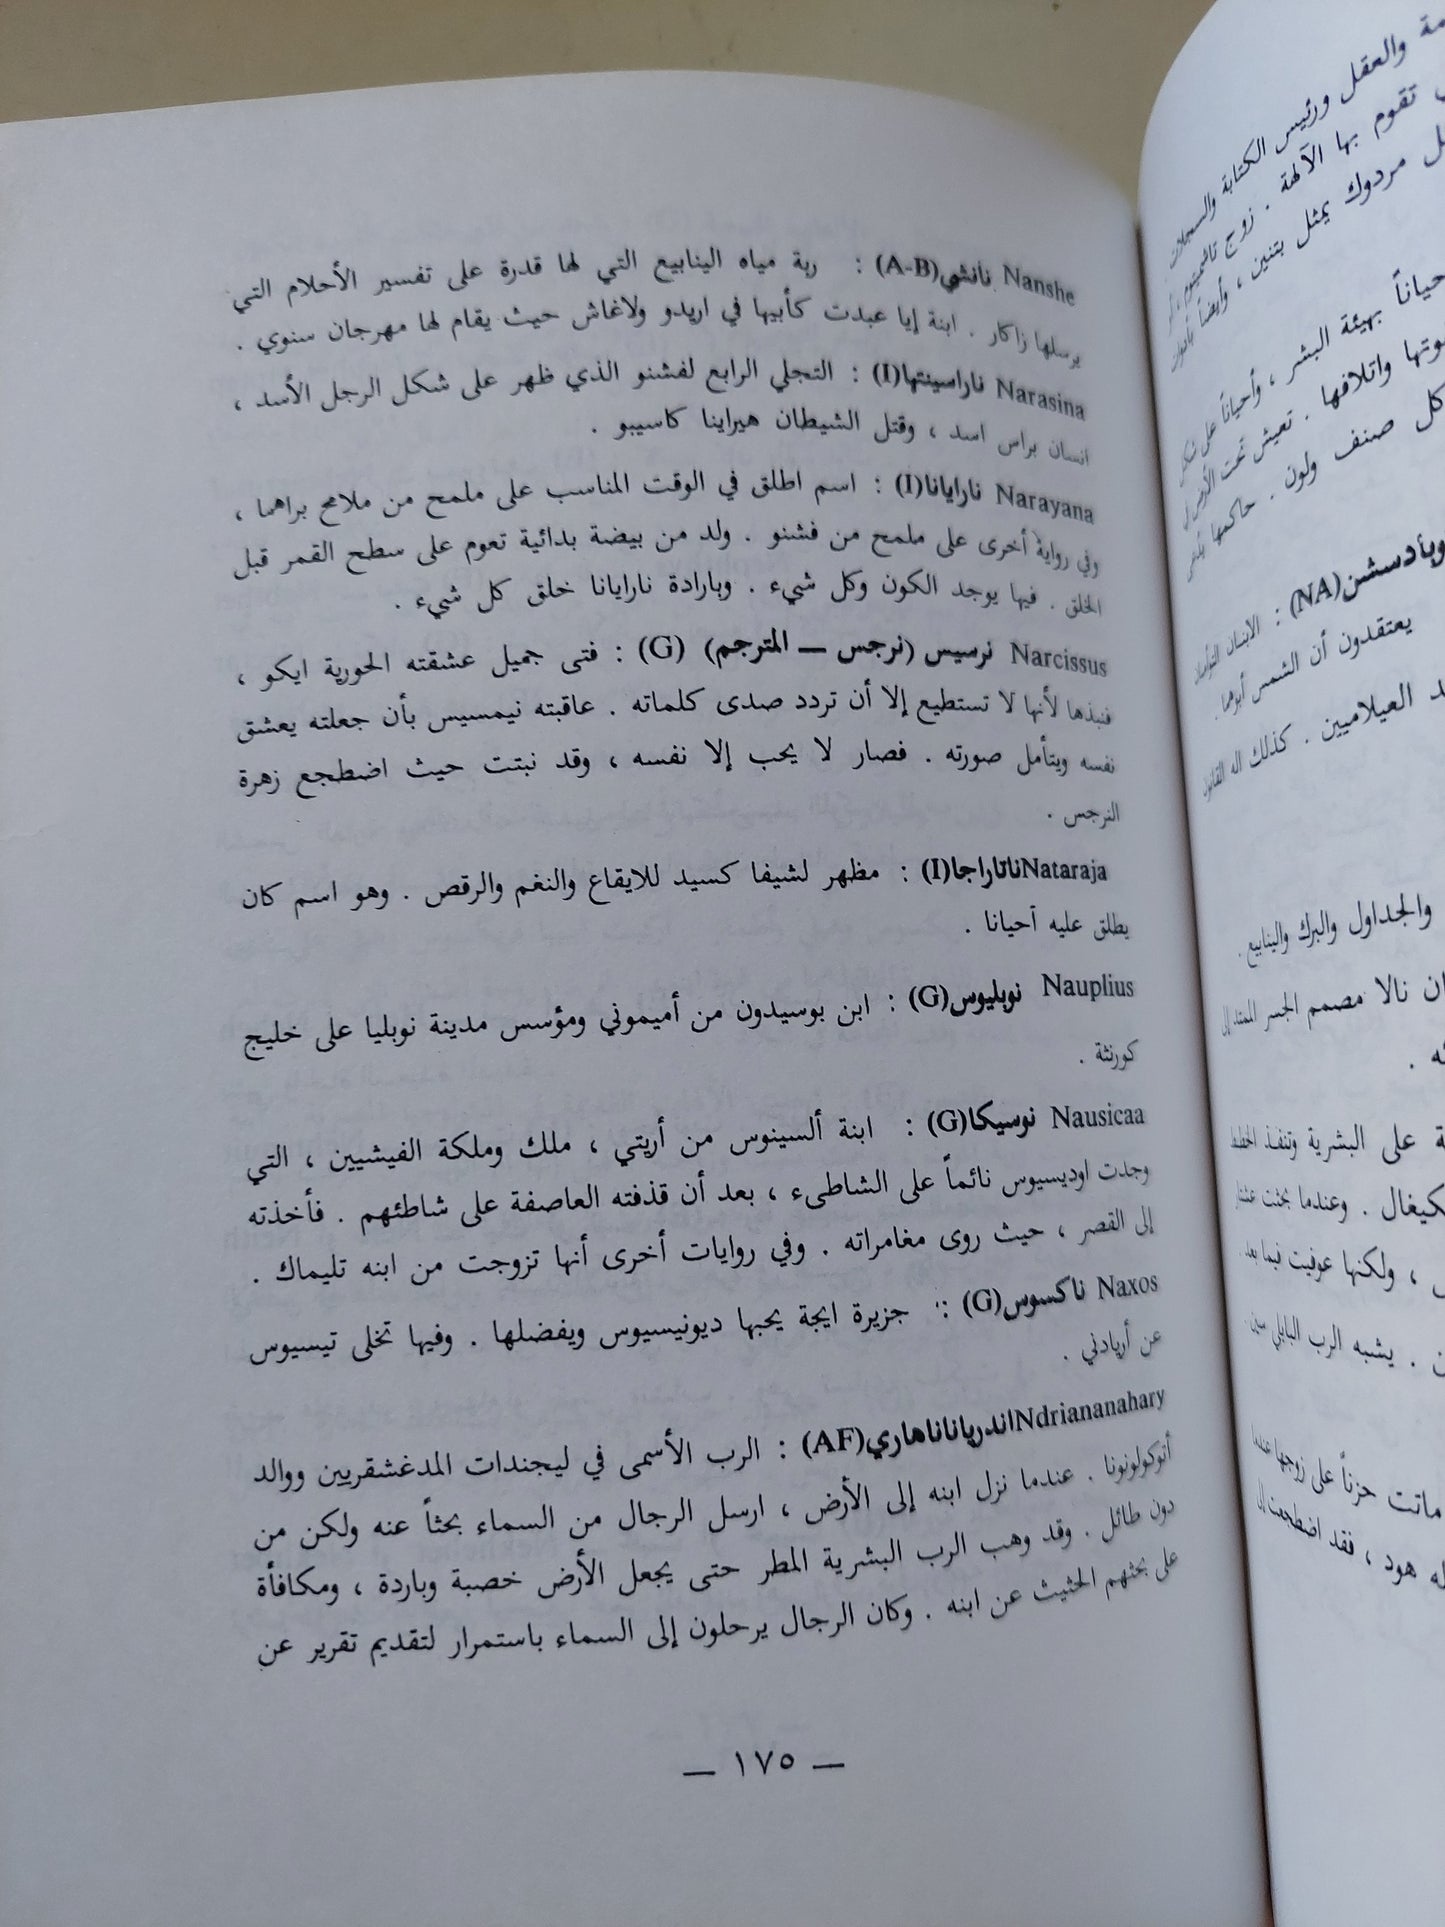 Nanshe نانشي(A-B) : ربة مياه الينابيع التي لها قدرة على تفسير الأحلام التي
يرسلها زاكار . ابنة إيا عبدت كأبيها في اريدو ولاغاش حيث يقام لها مهرجان سنوي .
Narasina ناراسينتها(I) : التجلي الرابع لفشنو الذي ظهر على شكل الرجل الأسد ،
انسان براس اسد ، وقتل الشيطان هيراينا كاسيبو .
Narayana نارايانا(I) : اسم اطلق في الوقت المناسب على ملمح من ملامح براهما ،
وفي رواية أخرى على ملمح من فشنو . ولد من بيضة بدائية تعوم على سطح القمر قبل
الخلق . فيها يوجد الكون وكل شيء . وبارادة نارايانا خلق كل شيء .
Narcissus نرسيس (نرجس — المترجم) (G) : فتى جميل عشقته الحورية ايكو ،
فنبذها لأنها لا تستطيع إلا أن تردد صدى كلماته . عاقبته نيمسيس بأن جعلته يعشق
نفسه ويتأمل صورته . فصار لا يحب إلا نفسه ، وقد نبتت حيث اضطجع زهرة
النرجس .
Nataraja ناتاراجا(I) : مظهر لشيفا كسيد للايقاع والنغم والرقص . وهو اسم كان
يطلق عليه أحيانا .
Nauplius نوبليوس(G) : ابن بوسيدون من أميموني ومؤسس مدينة نوبليا على خليج
كورنثة .
Nausicaa نوسيكا(G) : ابنة ألسينوس من أريتي ، ملك وملكة الفيشيين ، التي
وجدت اوديسيوس نائماً على الشاطىء ، بعد أن قذفته العاصفة على شاطئهم . فأخذته
إلى القصر ، حيث روى مغامراته . وفي روايات أخرى أنها تزوجت من ابنه تليماك .
Naxos ناكسوس(G) : جزيرة ايجة يحبها ديونيسيوس ويفضلها . وفيها تخلى تيسيوس
عن أريادني .
Ndriananahary اندرياناناهاري(AF) : الرب الأسمى في ليجندات المدغشقريين ووالد
أتوكولونونا . عندما نزل ابنه إلى الأرض ، ارسل الرجال من السماء بحثاً عنه ولكن من
دون طائل . وقد وهب الرب البشرية المطر حتى يجعل الأرض خصبة وباردة ، ومكافأة
على بحثهم الحثيث عن ابنه . وكان الرجال يرحلون إلى السماء باستمرار لتقديم تقرير عن
— ١٧٥ —
والعقل ورئيس الكتابة والسجلات .
تقوم بها الآلهة . زوج
مردوك يمثل بتنين ، وأيضاً
بهيئة البشر ، وأحياناً على شكل
واتلافها . تعيش تحت الأرض
كل صنف ولون . حاكمها
(NA) : الابنان التوأمان
يعتقدون أن الشمس أبوهما .
العيلاميين . كذلك اله القانون
والجداول والبرك والينابيع .
نالا مصمم الجسر الممتد إلى
على البشرية وتنفذ الخطط
وعندما بحثت عشتار
، ولكنها عوفيت فيما بعد .
. يشبه الرب البابلي سين .
ماتت حزناً على زوجها عندما
هود ، فقد اضطجعت إلى